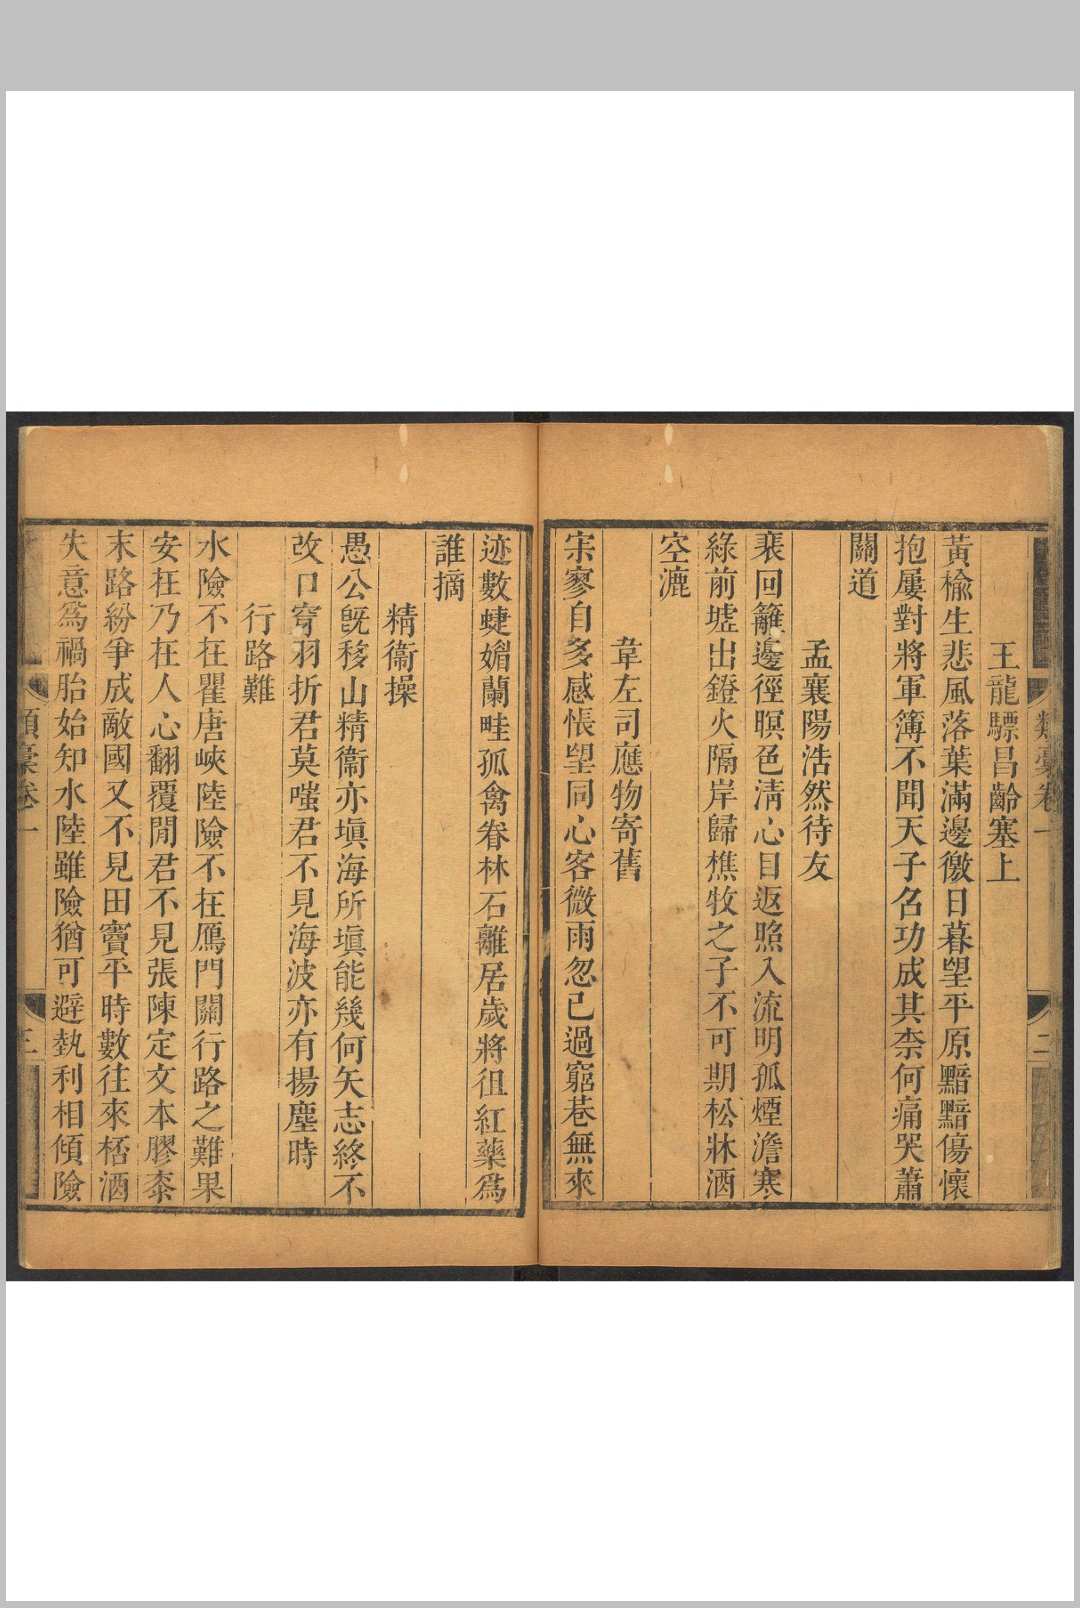 類槀卷一
二
王龍驃昌齡塞上
黃楡生悲風落葉滿邊徼日暮朢平原黯黯傷懷
抱屢對將軍簿不聞天子召功成其柰何痛哭蕭
關道
孟襄陽浩然待友
裴回籬邊徑暝色淸心目返照入流明孤煙澹寒
綠前墟出鐙火隔岸歸樵牧之子不可期松牀酒
空漉
韋左司應物寄舊
宋寥自多感悵朢同心客微雨忽已過窮巷無來
迹數蜨媚蘭畦孤禽眷林石離居歲將徂紅藥爲
誰摘
精衞操
愚公旣移山精衞亦塡海所塡能幾何矢志終不
改口穿羽折君莫嗤君不見海波亦有揚塵時
行路難
水險不在瞿唐峽陸險不在鴈門關行路之難果
安在乃在人心翻覆閒君不見張陳定交本膠桼
末路紛爭成敵國又不見田竇平時數往來桮酒
失意爲禍胎始知水陸雖險猶可避埶利相傾險
類槀卷一
三